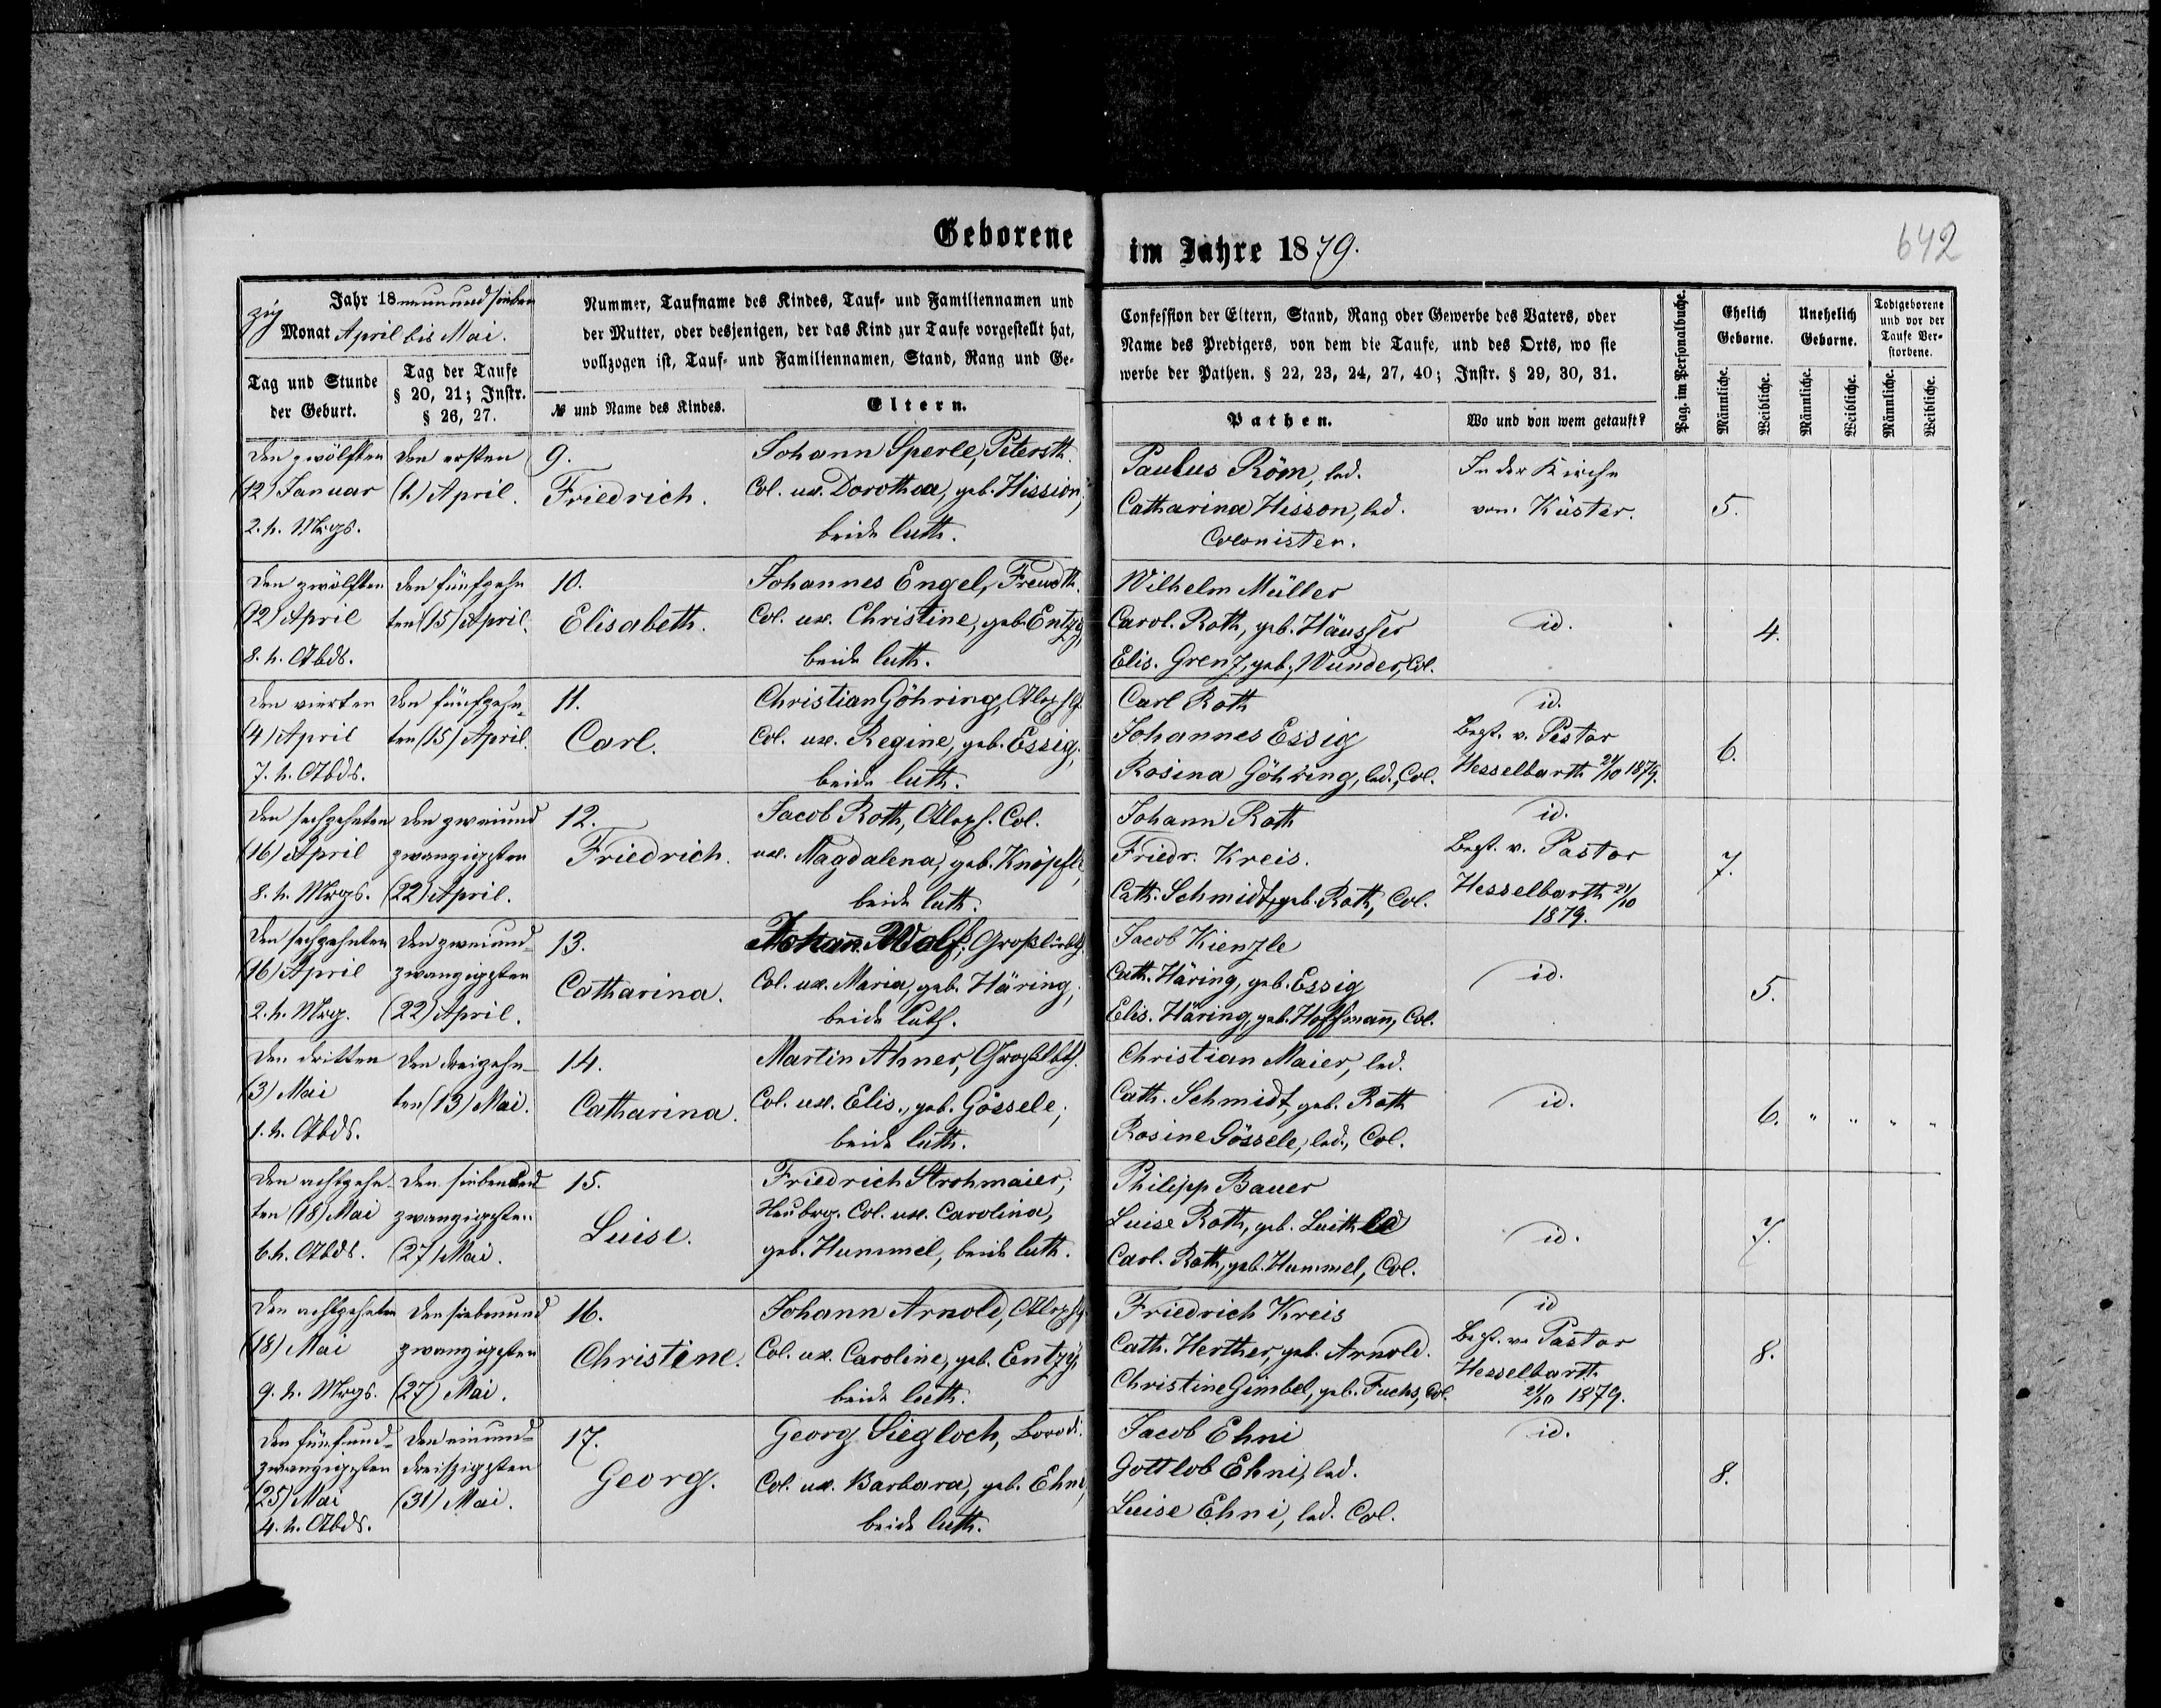 Geborene im Jahre 1879.
642
Jahr 18neunundsieben
zig
Monat April bis Mai.
Tag und Stunde
der Geburt.
Tag der Taufe
§ 20, 21; Instr.
§ 26, 27.
Nummer, Taufname des Kindes, Tauf- und Familiennamen und
der Mutter, oder desjenigen, der das Kind zur Taufe vorgestellt hat,
vollzogen ist, Tauf- und Familiennamen, Stand, Rang und Ge-
№ und Name des Kindes.
Eltern.
Confession der Eltern, Stand, Rang oder Gewerbe des Vaters, oder
Name des Predigers, von dem die Taufe, und des Orts, wo sie
werbe der Pathen. § 22, 23, 24, 27, 40; Instr. § 29, 30, 31.
Pathen.
Wo und von wem getauft?
Pag. im Personalbuche.
Ehelich
Geborne.
Unehelich
Geborne.
Todtgeborene
und vor der
Taufe Ver-
storbene.
Männliche.
Weibliche.
Männliche.
Weibliche.
Männliche.
Weibliche.
den zwölften
(12) Januar
2. h. Mrgs.
den ersten
(1.) April.
9.
Friedrich.
Johann Sperle, Petersth.
Col. ux. Dorothea, geb. Hission,
beide luth.
Paulus Röm, led.
Catharina Hisson, led.
Colonisten.
In der Kirche
vom Küster.
5.
den zwölften
(12) April
8. h. Abds.
den fünfzehn
ten (15) April.
10.
Elisabeth.
Johannes Engel, Freudth.
Col. ux. Christine, geb. Entzi,
beide luth.
Wilhelm Müller
Carol. Roth, geb. Häusser
Elis. Grenz, geb. Wunder, Col.
id.
4.
den vierten
(4) April
7. h. Abds.
den fünfzehn-
ten (15) April.
11.
Carl.
Christian Göhring,
Col. ux. Regine, geb. Essig,
beide luth.
Carl Roth
Johannes Essig
Rosina Göhring, led., Col.
id.
Best. v. Pastor
Hesselbarth 21/10 1879.
6.
den sechzehnten
(16) April
8. h. Mrgs.
den zweiund
zwanzigsten
(22) April.
12.
Friedrich.
Jacob Roth, Alexhf. Col.
ux. Magdalena, geb. Knöpfle,
beide luth.
Johann Roth
Friedr. Kreis.
Cath. Schmidt, geb. Roth, Col.
id.
Best. v. Pastor
Hesselbarth 21/10
1879.
7.
den sechzehnten
(16) April
2. h. Mrg.
den zweiund-
zwanzigsten
(22) April.
13.
Catharina.
Johann Wolf, Großliebth.
Col. ux. Maria, geb. Häring,
beide luth.
Jacob Kienzle
Cath. Häring, geb. Essig
Elis. Häring, geb. Hoffmann, Col.
id.
5.
den dritten
(3) Mai
1. h. Abds.
den dreizehn-
ten (13) Mai.
14.
Catharina.
Martin Ahner, Großlbth.
Col. ux. Elis., geb. Gössele;
beide luth.
Christian Maier, led.
Cath. Schmidt, geb. Roth
Rosine Gössele, led., Col.
id.
6. " " " "
den achtzehn-
ten (18) Mai
6. h. Abds.
den siebenund
zwanzigsten
(27) Mai.
15.
Luise.
Friedrich Strohmaier,
Neubrg. Col. ux. Carolina,
geb. Hummel, beide luth.
Philipp Bauer
Luise Roth, geb.
Carl. Roth, geb. Hummel, Col.
id.
7.
den achtzehnten
(18) Mai
9. h. Mrgs.
den siebenund
zwanzigsten
(27) Mai.
16.
Christine.
Johann Arnold,
Col. ux. Caroline, geb. Entzi,
beide luth.
Friedrich Kreis
Cath. Herther, geb. Arnold.
Christine Gimbel, geb. Fuchs, Col.
id
Best. v. Pastor
Hesselbarth
21/10 1879.
8.
den fünfund-
zwanzigsten
(25) Mai
4. h. Abds.
den einund-
dreiszigsten
(31) Mai.
17.
Georg.
Georg Siegloch, Borodi.
Col. ux. Barbara, geb. Ehni,
beide luth.
Jacob Ehni
Gottlob Ehni, led.
Luise Ehni, led. Col.
id.
8.